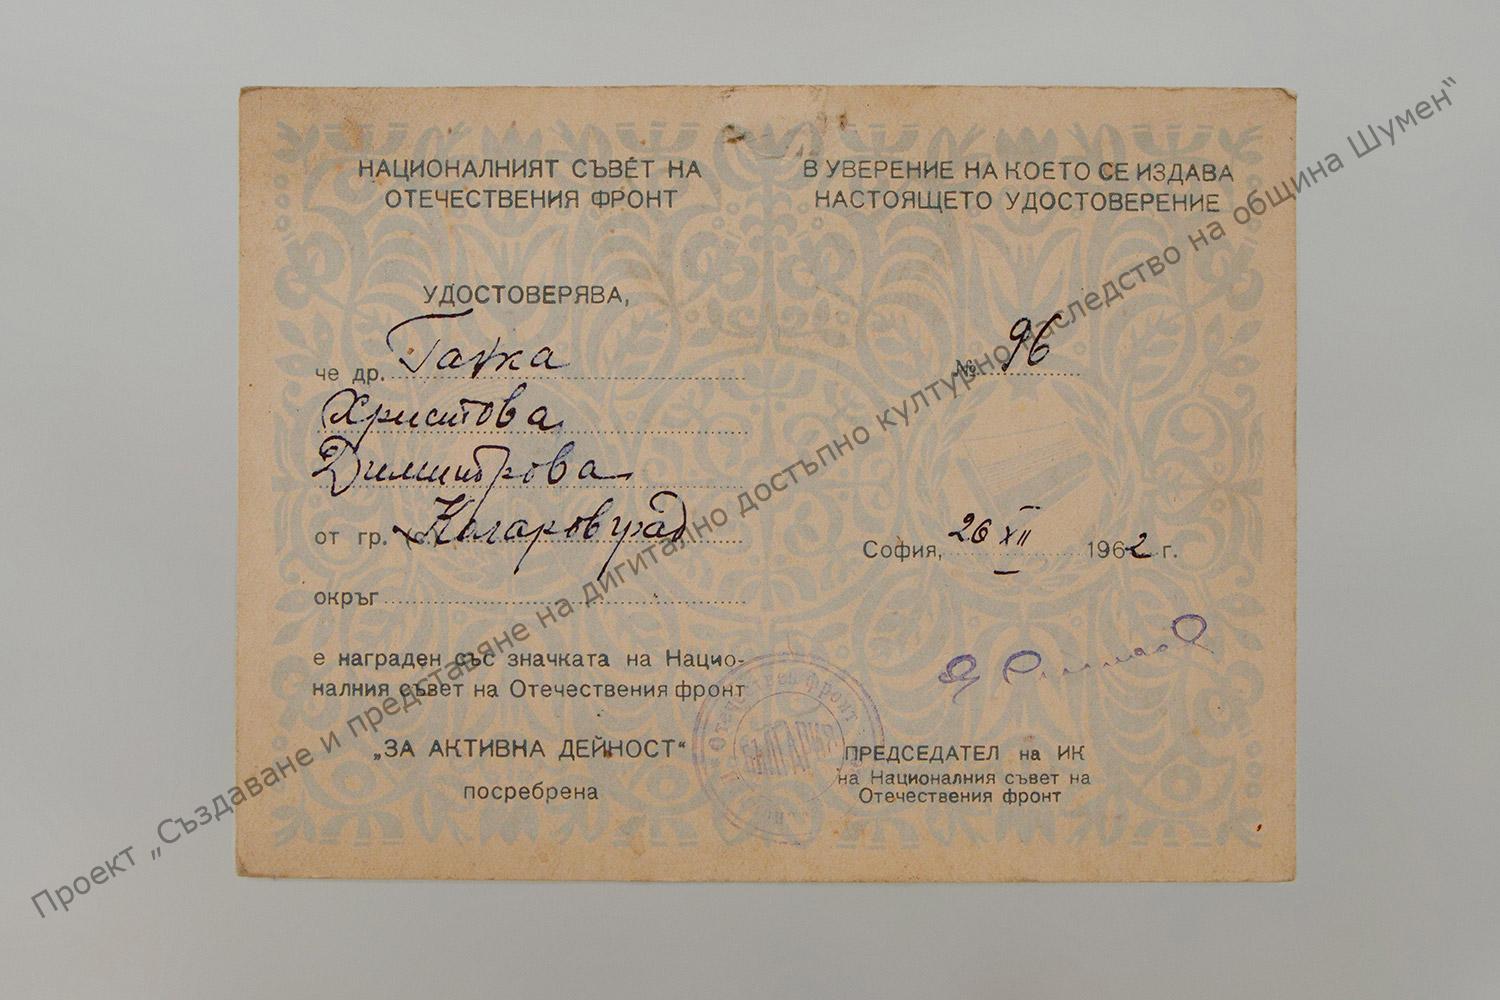 НАЦИОНАЛНИЯТ СЪВЕТ НА
ОТЕЧЕСТВЕНИЯ ФРОНТ
УДОСТОВЕРЯВА,
че др. Ганка
Христова
Димитрова
от гр. (с.) Коларовград
окръг
е награден със значката на Нацио-
налния съвет на Отечествения фронт
„ЗА АКТИВНА ДЕЙНОСТ“
посребрена
В УВЕРЕНИЕ НА КОЕТО СЕ ИЗДАВА
НАСТОЯЩЕТО УДОСТОВЕРЕНИЕ
№ 96
София, 26 XII 1962 г.
ПРЕДСЕДАТЕЛ на ИК
на Националния съвет на
Отечествения фронт
Отечествен фронт
БЪЛГАРИЯ
Проект „Създаване и представяне на дигитално достъпно културно наследство на община Шумен“